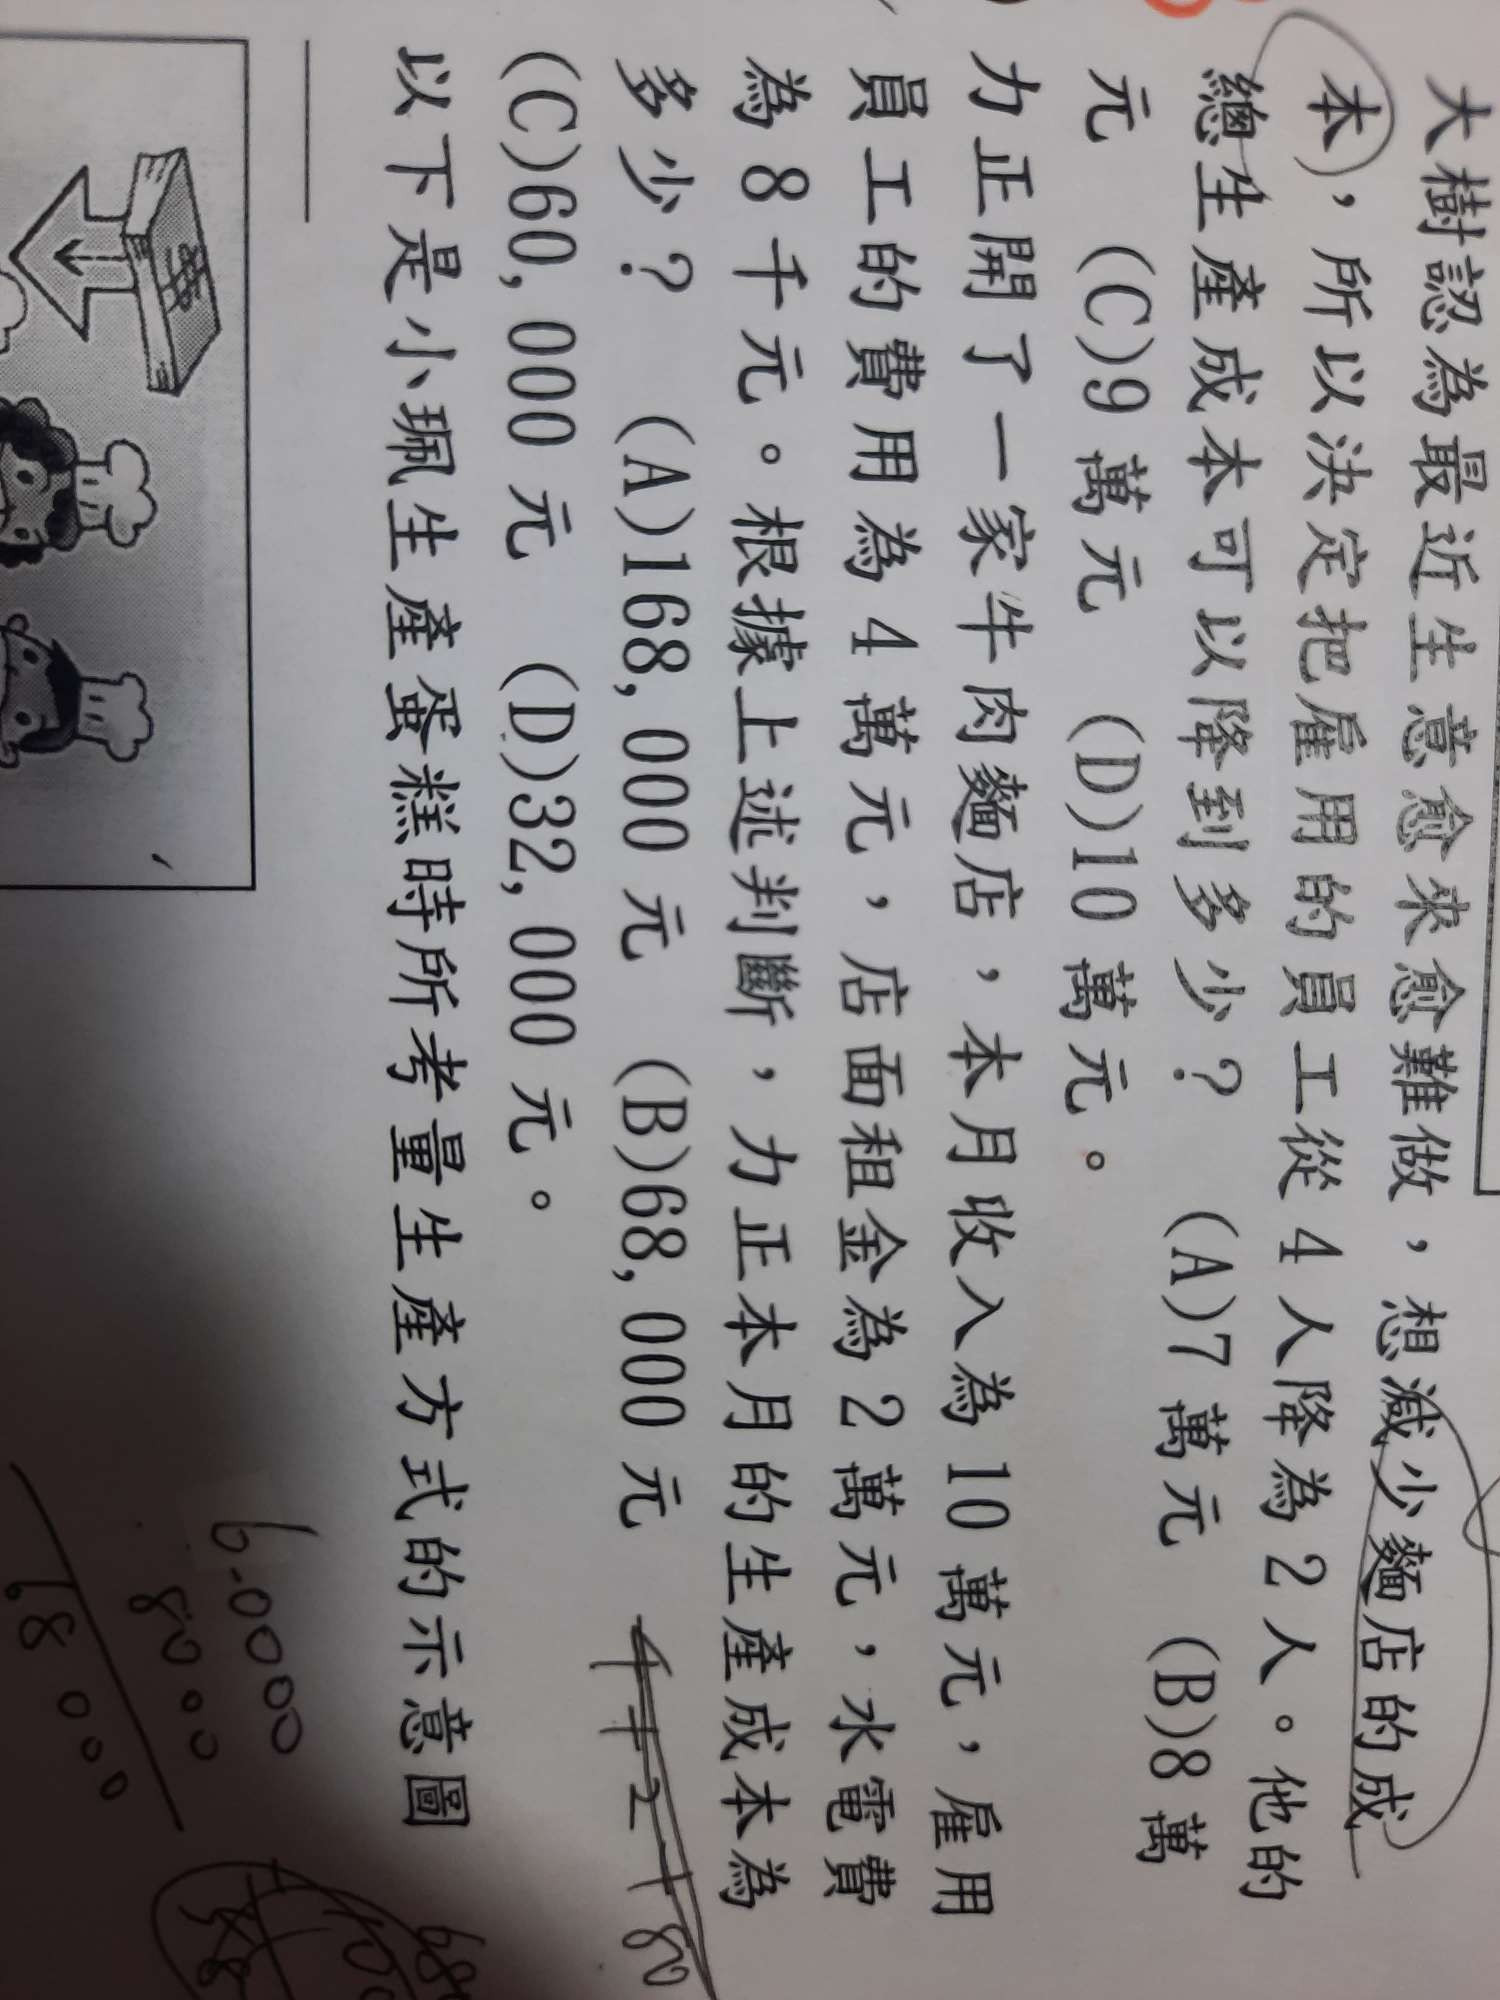 大樹認為最近生意愈來愈難做，想減少麵店的成
本，所以決定把雇用的員工從 4 人降為 2 人。他的
總生產成本可以降到多少？ (A)7 萬元 (B)8 萬
元 (C)9 萬元 (D)10 萬元。
力正開了一家牛肉麵店，本月收入為 10 萬元，雇用
員工的費用為 4 萬元，店面租金為 2 萬元，水電費
為 8 千元。根據上述判斷，力正本月的生產成本為
多少？ (A)168,000 元 (B)68,000 元
(C)60,000 元 (D)32,000 元。
以下是小珮生產蛋糕時所考量生產方式的示意圖
60000
8000
68000